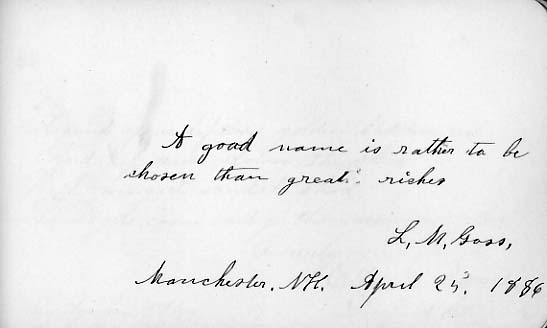 A good name is rather to be
chosen than great riches
L. M. Goss,
Manchester. N.H. April 25. 1886